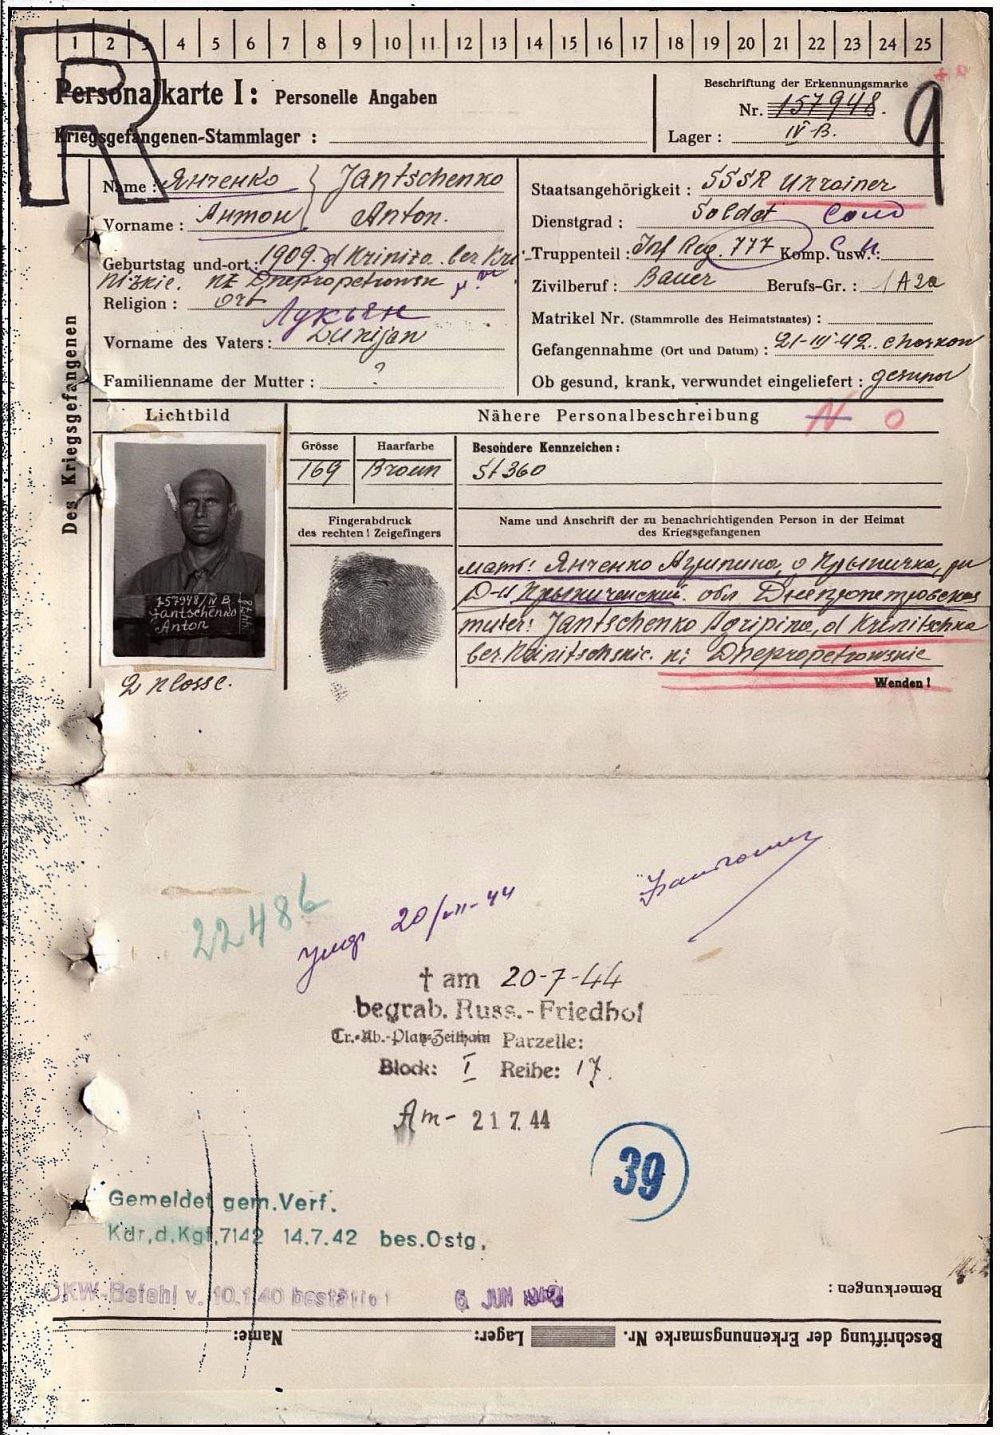 R
1 2 3 4 5 6 7 8 9 10 11 12 13 14 15 16 17 18 19 20 21 22 23 24 25
Personalkarte I: Personelle Angaben
Kriegsgefangenen-Stammlager :
Beschriftung der Erkennungsmarke
Nr. 157948.
Lager : IV B.
9
Des Kriegsgefangenen
Name : Янченко Jantschenko
Vorname : Антон Anton.
Geburtstag und-ort: 1909. d Kriniza. ber Kri
nizkie. Dnepropetrowsk
Religion : ort
Лукьян
Vorname des Vaters: Lukijan
Familienname der Mutter : ?
Staatsangehörigkeit : SSSR Ukrainer
Dienstgrad : Soldat
Truppenteil : Inf Reg. 777 Komp. usw.:
Zivilberuf : Bauer Berufs-Gr. : 1 A 2a
Matrikel Nr. (Stammrolle des Heimatstaates) :
Gefangennahme (Ort und Datum) : Charkow
Ob gesund, krank, verwundet eingeliefert : gesund
Lichtbild
Nähere Personalbeschreibung N 0
Grösse
169
Haarfarbe
Braun
Besondere Kennzeichen :
St 360
Fingerabdruck
des rechten ! Zeigefingers
Name und Anschrift der zu benachrichtigenden Person in der Heimat
des Kriegsgefangenen
157948/IV B
Jantschenko
Anton
мать: Янченко Агрипина,
обл Днепропетровская
muter: Jantschenko Agripina, d Krinitschka
Dnepropetrowskie
2 klosse.
Wenden !
22486
умер 20/VII-44
† am 20-7-44
begrab. Russ.-Friedhof
Tr.-Üb.-Platz-Zeithain Parzelle:
Block: I Reihe: 17.
Am - 21 7. 44
39
Gemeldet gem.Verf.
Kdr,d,Kgf,7142 14.7.42 bes.Ostg,
OKW-Befehl v. 10.1.40 bestätigt 6 JUN 1942
Bemerkungen :
Beschriftung der Erkennungsmarke Nr. Lager: Name: